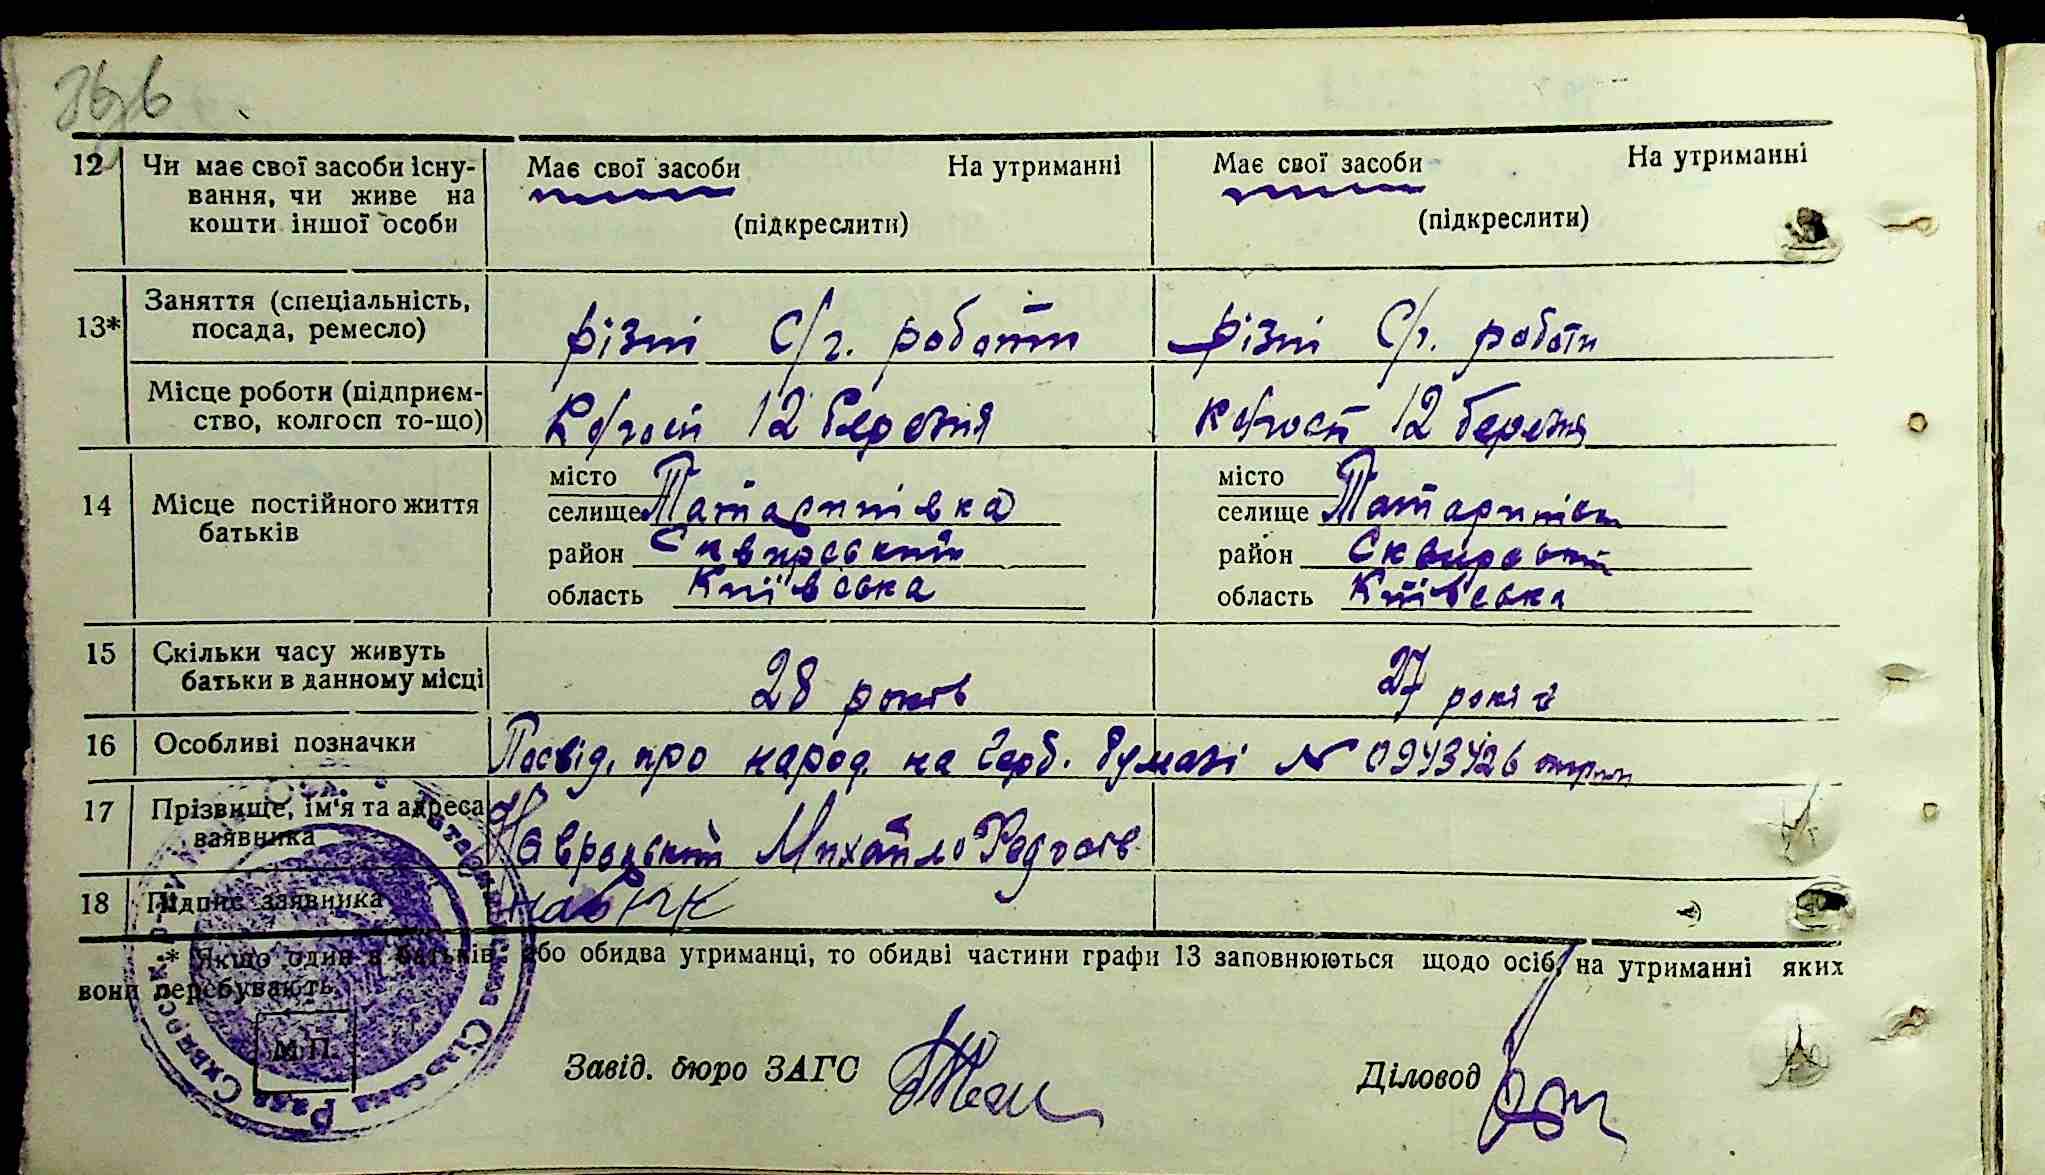 12 Чи має свої засоби існу- Має свої засоби На утриманні Має свої засоби На утриманні
вання, чи живе на
кошти іншої особи (підкреслити) (підкреслити)
13* Заняття (спеціальність, різні с/г. роботи різні с/г. роботи
посада, ремесло)
Місце роботи (підприєм- Колгосп 12 березня колгосп 12 березня
ство, колгосп то-що)
14 Місце постійного життя місто місто
батьків селище Татаринівка селище Татаринівка
район Сквирський район Сквирський
область Київська область Київська
15 Скільки часу живуть 28 років 27 років
батьки в данному місці
16 Особливі позначки Посвід. про народ. на Герб. бумазі № 0943426
17 Прізвище, ім'я та адреса Навроцький Михайло
заявника
18 Підпис заявника
* Якщо один з батьків або обидва утриманці, то обидві частини графи 13 заповнюються щодо осіб, на утриманні яких
вони перебувають.
М.П.
Завід. бюро ЗАГС Діловод
Сільська Рада